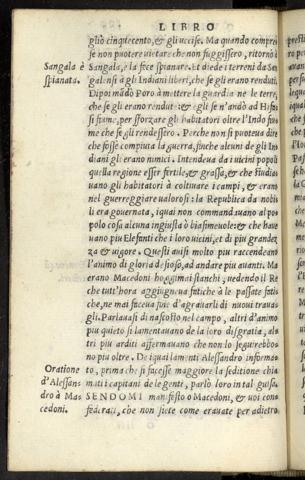 LIBRO
gliò cinquecento, & gli uccise. Ma quando comprese
se non potere vietare che non fuggissero, ritornò à
Sangala è
spianata.
Sangala, & la fece spianare. Et diede i terreni da San
gali nsi à gli Indiani liberi, che se gli erano renduti.
Dipoi mādò Poro à mettere la guardia ne le terre,
che se gli erano rendute: & egli se n'andò ad Hifasi
si fiume, per sforzare gli habitatori oltre l'Indo fiume
che se gli rendessero. Perche non si poteua dire
che fosse compiuta la guerra, finche alcuni de gli Indiani
gli erano nimici. Intendeua da i uicini popoli
quella regione esser fertile, & grassa, & che studiauano
gli habitatori à coltiuare i campi, & erano
nel guerreggiare ualorosi: la Republica da nobili
era gouernata, i quai non commandauano al popolo
cosa alcuna ingiusta ò biasimeuole: & che haueuano
piu Elefanti che i loro uicini, et di piu grandezza
& uigore. Questi auisi molto piu raccendeano
l'animo di gloria desioso, ad andare piu auanti. Ma
erano Macedoni hoggimai stanchi, uedendo il Re
che tutt'hora aggiugneua fatiche à le passate fatiche,
ne mai faceua fine d'agrauarli di nuoui trauagli.
Parlauasi di nascosto nel campo, altri d'animo
piu quieto si lamentauano de la loro disgratia, altri
piu arditi affermauano che non lo seguirebbono
piu oltre. De iquai lamenti Alessandro informato,
prima che si facesse maggiore la seditione chiamati
i capitani de le genti, parlò loro in tal guisa.
Oratione
d'Alessan
dro à Ma
cedoni.
SENDOMI manifesto o Macedoni, & uoi confederati,
che non siete come erauate per adietro